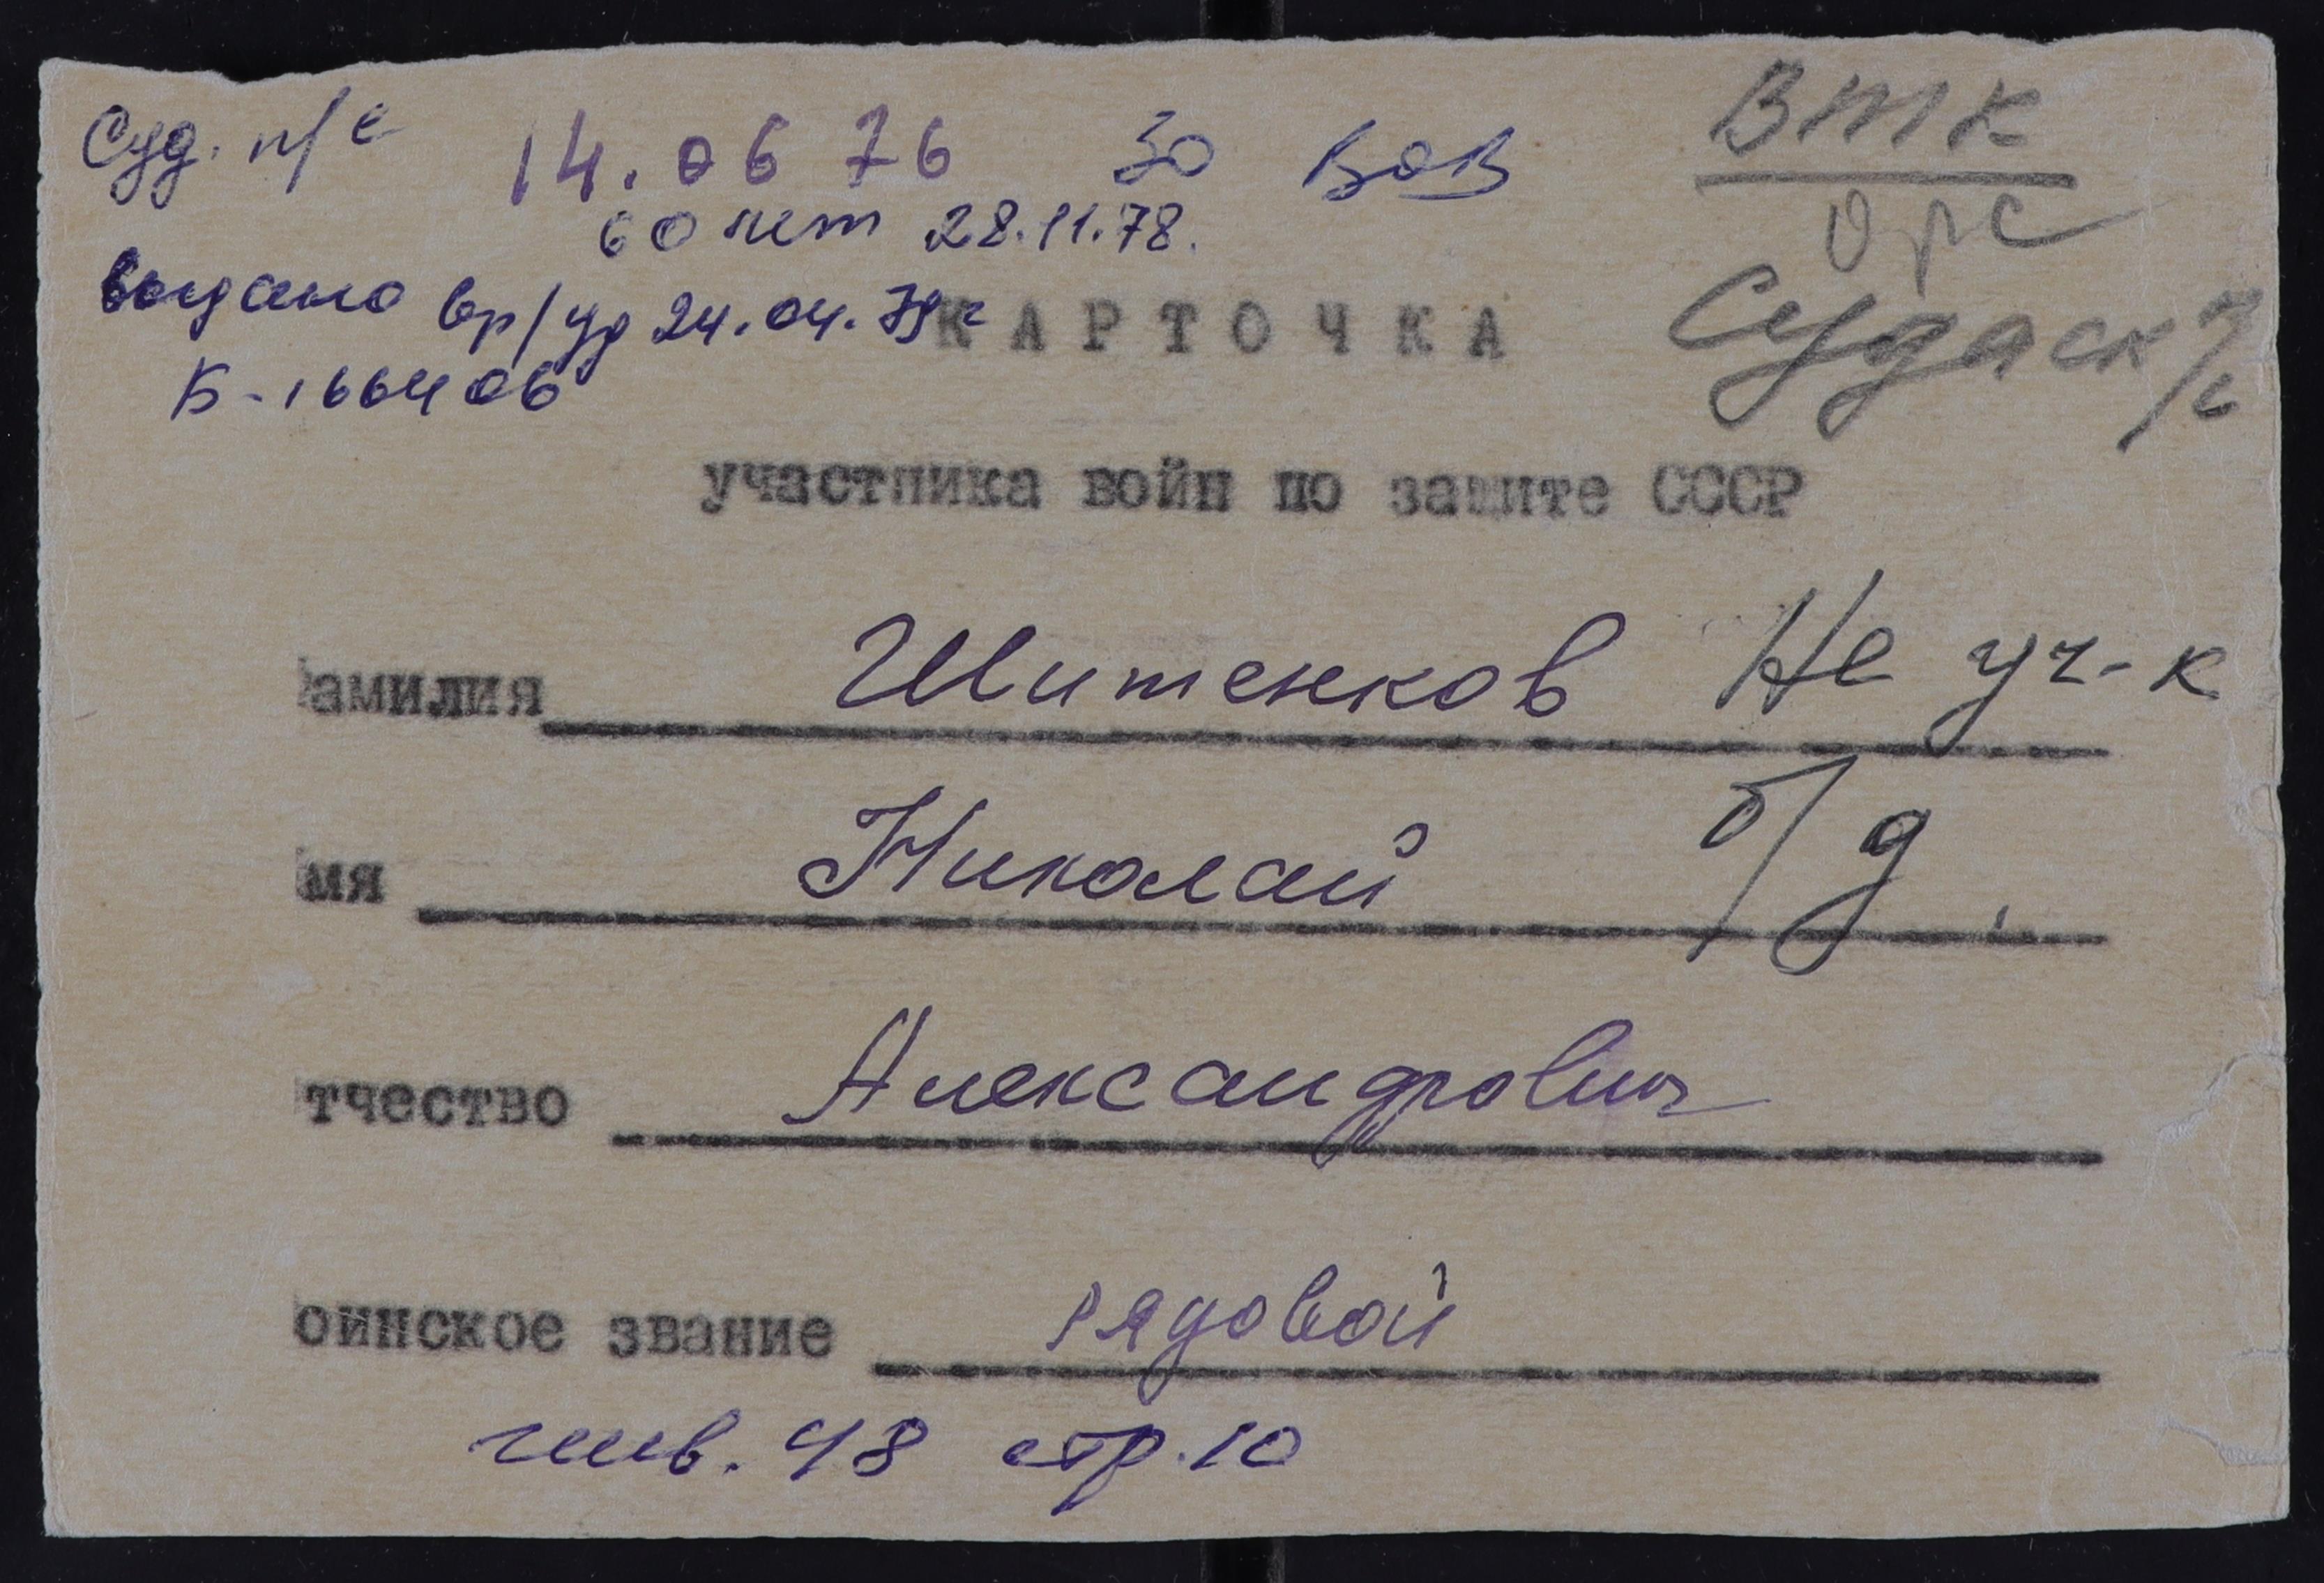 Суд. п/с 14.06 76 30 ВОВ
ВТК
60 лет 28.11.78.
орс
выдано вр/уд 24.04.79г
КАРТОЧКА
Судаск
Б-166406
участника войн по защите СССР
амилия Шитенков Не уч-к
мя Николай б/д.
тчество Александрович
оинское звание рядовой
инв. 48 стр. 10